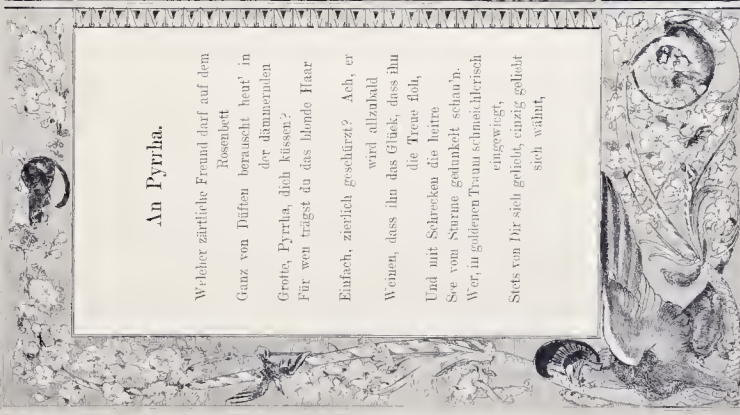 An Pyrrha.
Welcher zärtliche Freund darf auf dem
Rosenbett
Ganz von Düften berauscht heut' in
der dämmernden
Grotte, Pyrrha, dich küssen?
Für wen trägst du das blonde Haar
Einfach, zierlich geschürzt? Ach, er
wird allzubald
Weinen, dass ihn das Glück, dass ihn
die Treue floh,
Und mit Schrecken die heitre
See vom Sturme gedunkelt schau'n.
Wer, in goldenen Traum schmeichlerisch
eingewiegt,
Stets von Dir sich geliebt, einzig geliebt
sich wähnt,